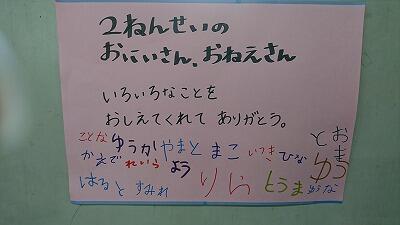 2ねんせいの
おにいさん、おねえさん
いろいろなことを
おしえてくれて ありがとう。
ことな ゆうか やまと まこ いつき ひな とおま
かえで れいら よう ゆう
はると すみれ りら とうま ゆうな